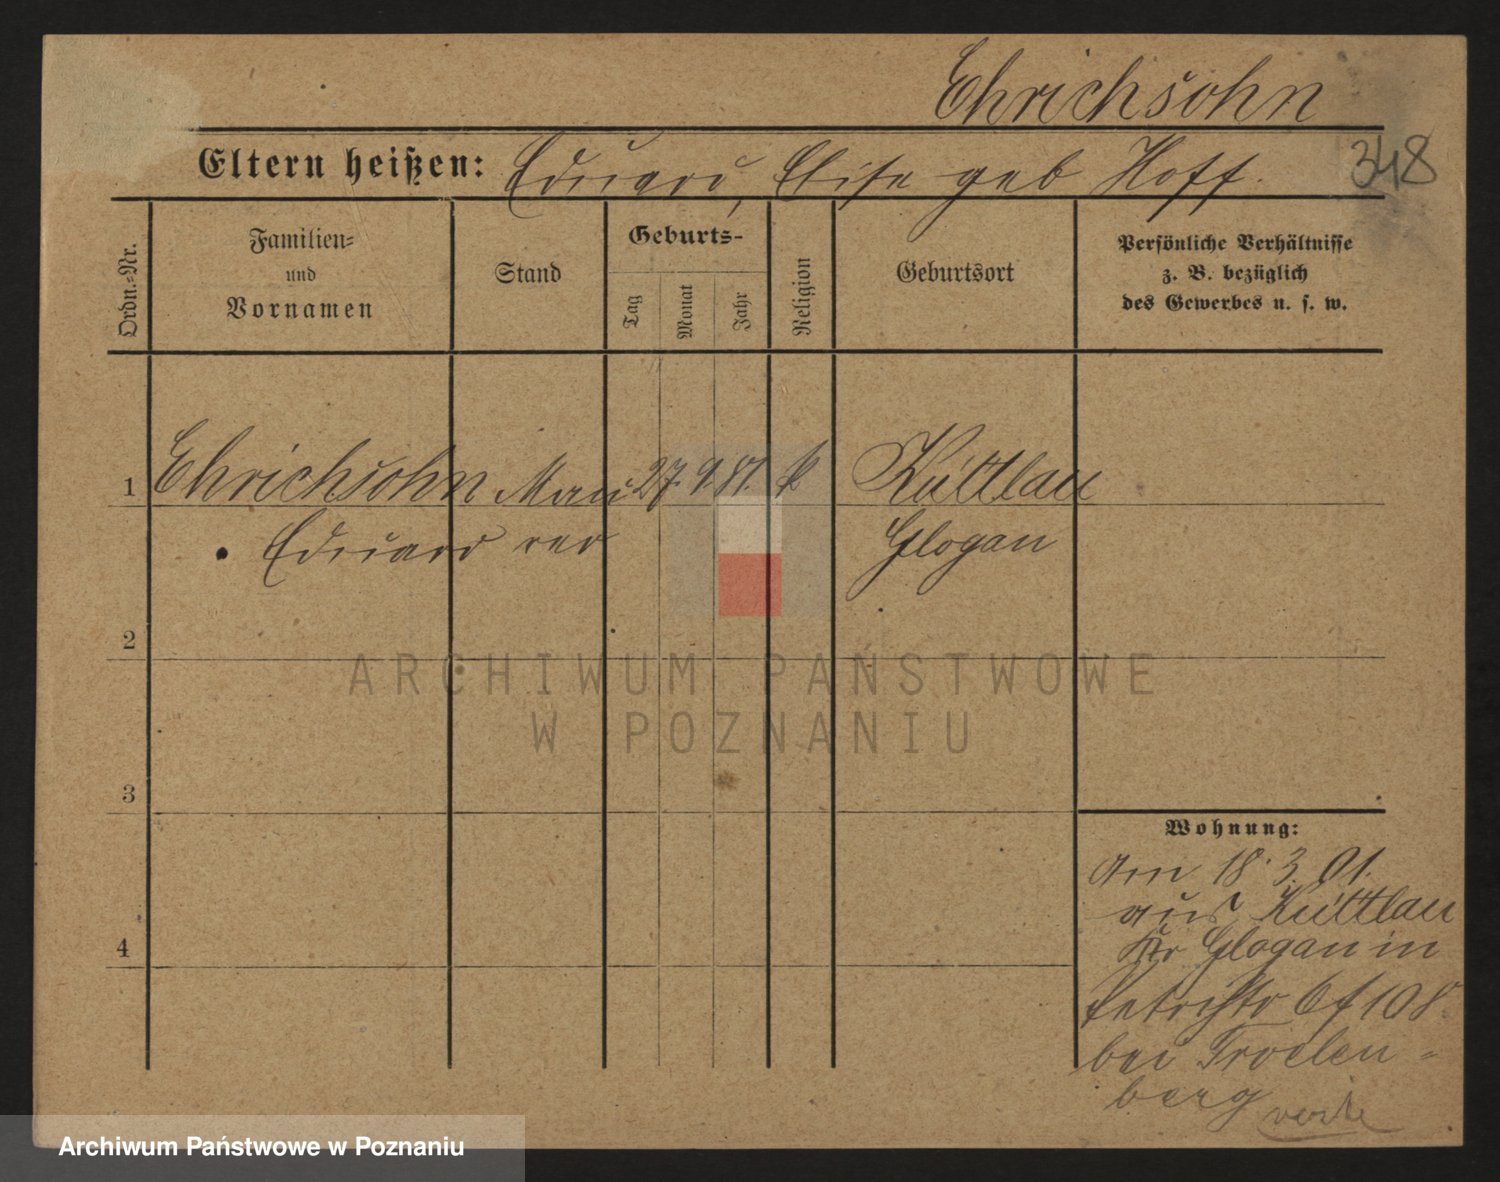 Ehrichsohn
Eltern heißen: Eduard, Elise geb Hoff.
348
Ordn.-Nr.
Familien-
und
Vornamen
Stand
Geburts-
Tag
Monat
Jahr
Religion
Geburtsort
Persönliche Verhältnisse
z. B. bezüglich
des Gewerbes u. s. w.
1 Ehrichsohn Mau 27. 9. 81. k Kuttlau
Eduard rer Glogau
2
3
4
ARCHIWUM PAŃSTWOWE
W POZNANIU
Wohnung:
Am 18. 3. 01.
aus Kuttlau
Kr Glogau in
Petristr 6 f 108
bei Troelen-
berg
verte
Archiwum Państwowe w Poznaniu